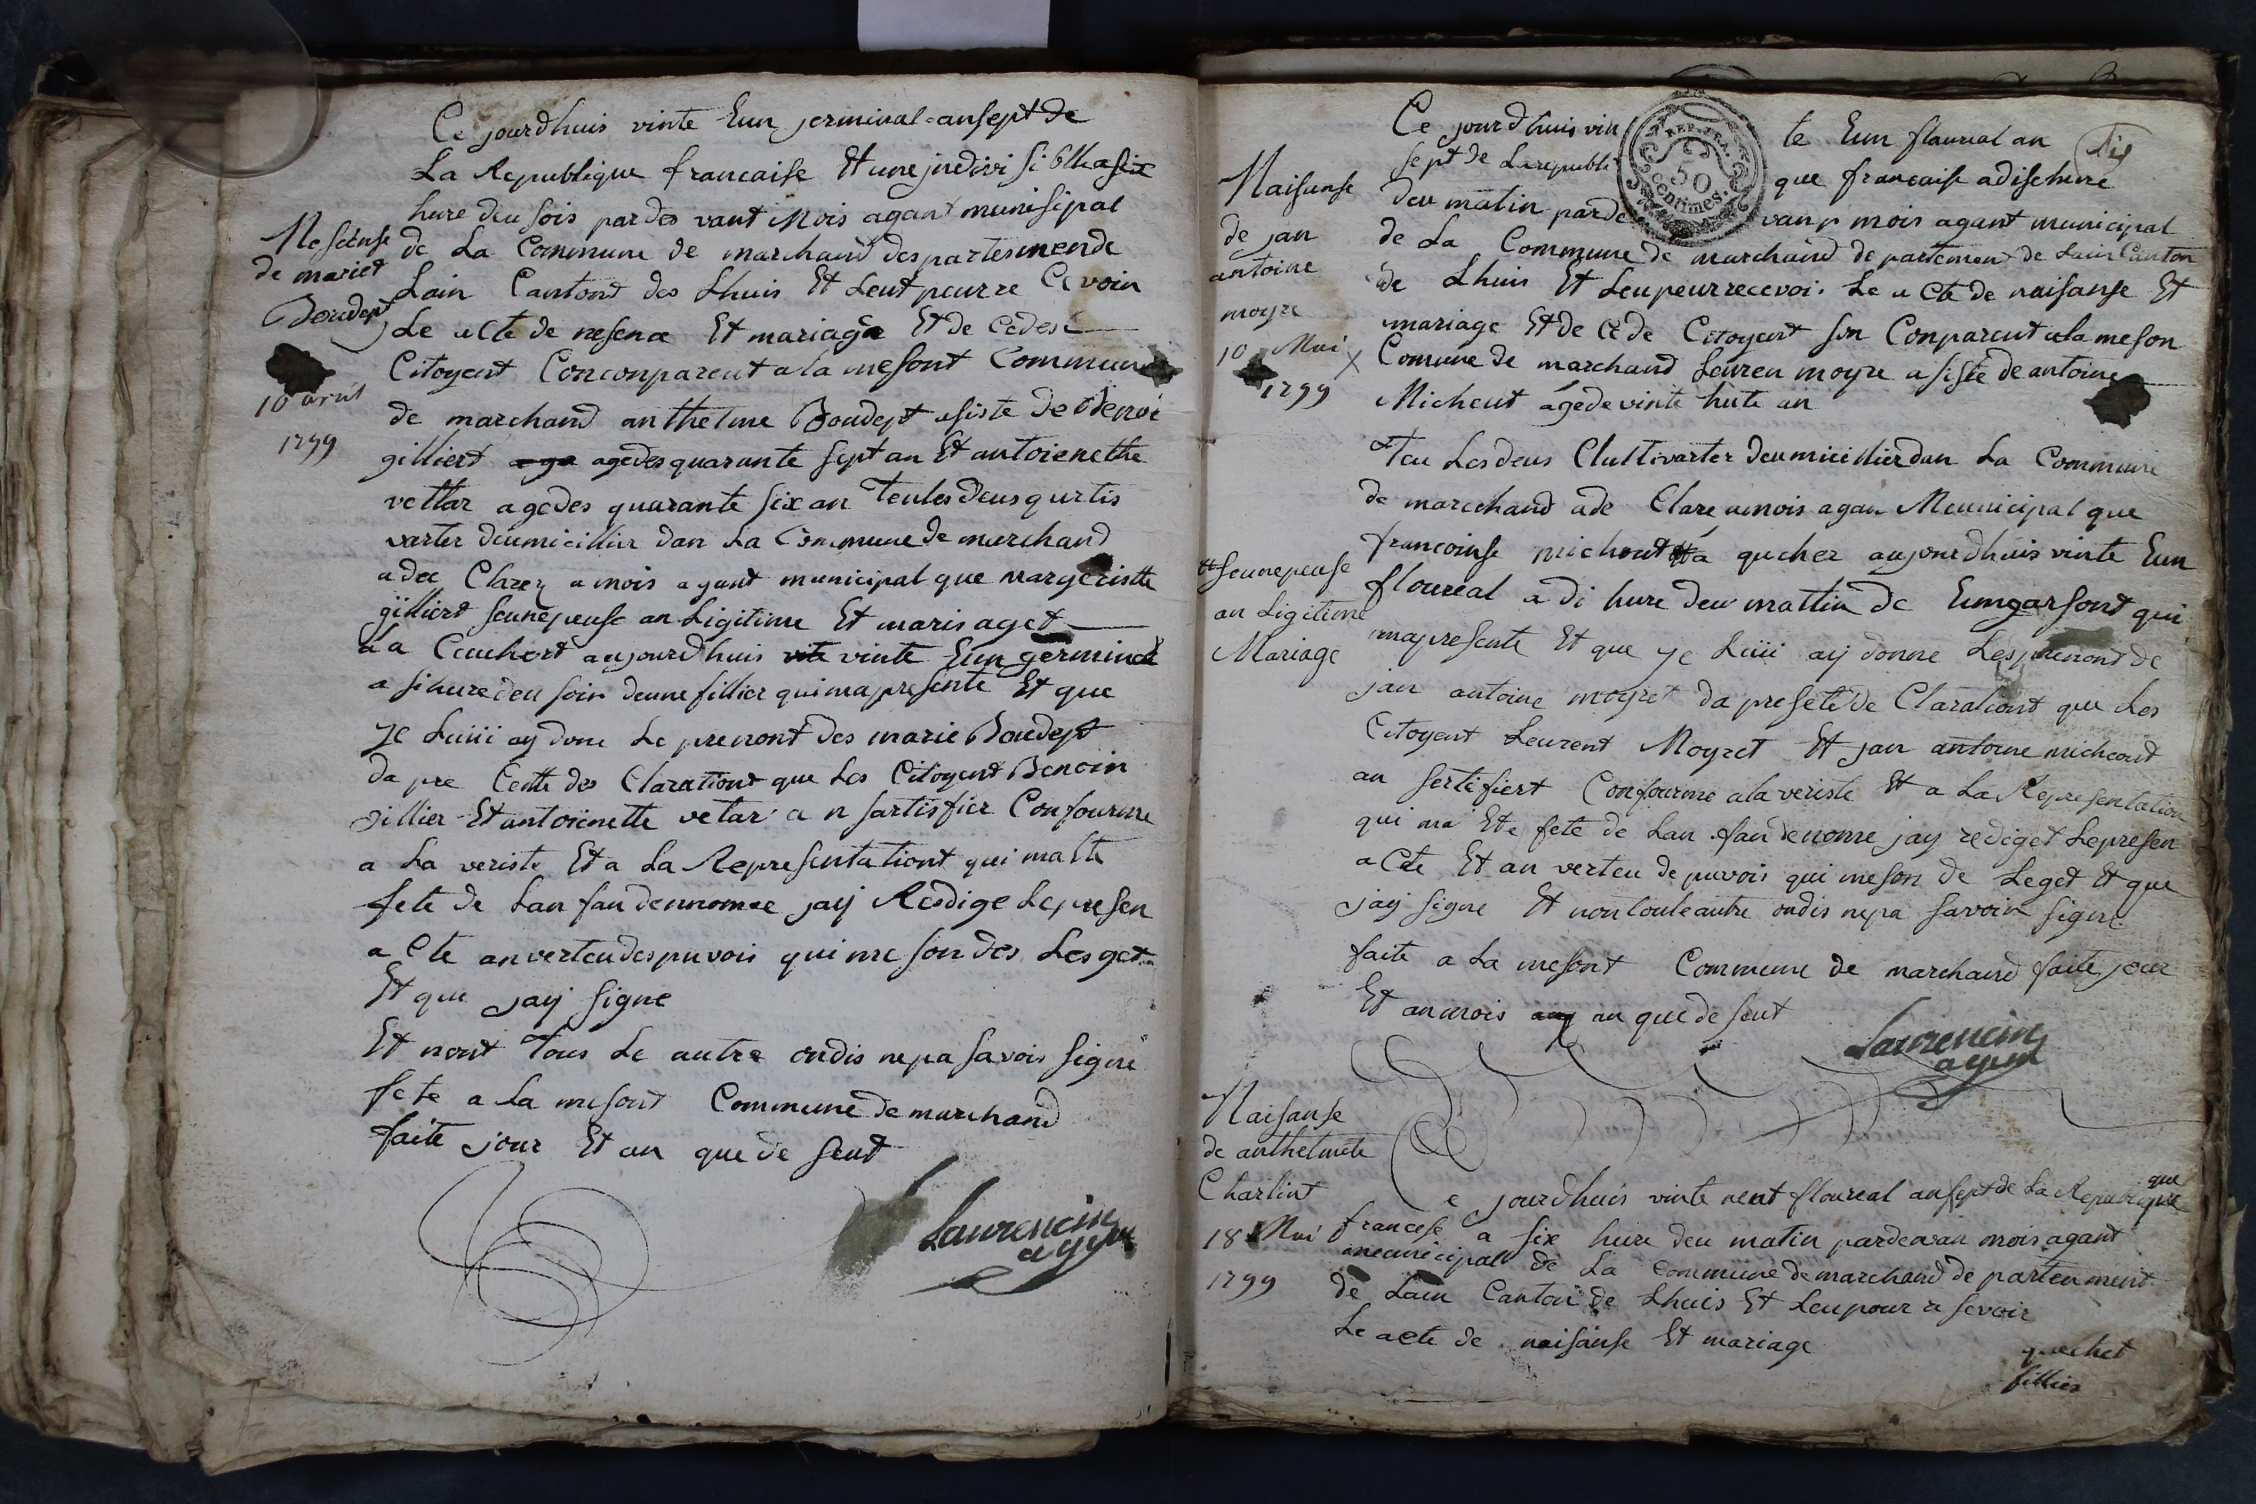 Ce jourdhuis vinte Eun jerminal ansept de
La Republique francaise Et une jndivisiblle a six
hure deu sois pardes vant Mois agant munisipal
Nesense
de La Commune de marchand despartesmende
de mariet
Lain Cantont des Lhuis Et Leut peurre Cevoir
Boudept
Le acte de nesence Et mariage Et de Cedes
Citoyent Conconparent a la mesont Commune
10 avril
de marchand anthelme Boudept asiste de Benoi
1799
gilliert agedes quarante sept an Et antoienethe
vettar agedes quarante six an Teulesdeus qurtis
varter deumicillier dan La Commune de marchand
a dec Clarez a mois agant municipal que margeriette
gilliert seunepeuse an Ligitime Et marisaget
a a Ceuchert aujourdhuis vinte Eun germinal
a sihure deu soir deune fillier quimapresente Et que
ye Luiii ay done Le prenont des marie Boudept
da pre Cette des Clarationt que Les Citoyent Benoin
gillier Et antoienette vetar a n sartisfier Confourme
a La veriste Et a La Representationt qui ma Ete
fete de Lan fan dennomee jay Redige Lepresen
a Cte anverteudespuvois qui me sondes Lesget
Et que jay signe
Et nont Tous Le autre ondis nepa savois signe
fete a La mesont Commune de marchand
faite jour Et an que de sent
Laurencin
agent
Ce jourdhuis vin te Eun flaureal an
sept de Larepubli que francaise a dischure
Naisanse
deu matin parde vant mois agant municipal
de jan
de La Commune de marchand departemen de Lain Canton
antoine
de Lhuis Et Leupeurrecevoi Le acte de naisanse Et
moyre
mariage Et de Cede Citoyent son Conparent ala meson
10 Mai
Comune de marchand Leuren moyre asiste de antoine
1799
Micheut agede vinte huite an
Teu Lesdeus Clultivarter deumicillierdan La Commune
de marcehand ade Clare amois agan Meunicipal que
francoinse micheut a qucher aujourdhuis vinte Eun
seunepeuse
an Ligitime
Mariage
floureal a di hure deu mattin de Eungarsont qui
mapresente Et que ye Luiii ay donne Lesprenond de
jan antoine moyret da presete de Clarationt que Les
Citoyent Leurent Moyret Et jan antoine micheout
an sertifiert Confourme ala veriste Et a La Representation
qui ma Ete fete de Lan fan denome jay rediget Lepresen
a Cte Et an verteu de puvois qui meson de Leget Et que
jay signe Et non touleautre ondis nepa savoir signe
faite a La mesont Commune de marchand faite jour
Et anmois an que de sent
Laurencin
agent
Naisanse
de anthelmete
Charlint
Ce jourdhuis vinte neut floureal ansept de La Republique
18 Mai
francese a six hure deu matin pardevan mois agant
meunicipall de La Commune de marchand departeument
1799
de Lain Canton de Lhuis Et Leupour re sevoir
Le acte de naisanse Et mariage
quechet
fillier
REP. FRA.
50
centimes.